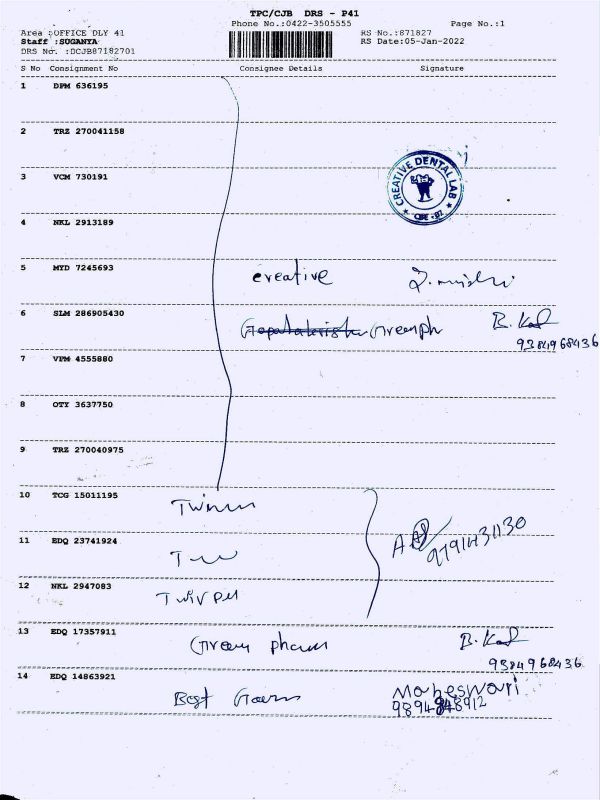 TPC/CJB DRS - P41
Phone No.:0422-3505555 Page No.:1
Area :OFFICE DLY 41 RS No.:871827
Staff :SUGANYA RS Date:05-Jan-2022
DRS No. :DCJB87182701
S No Consignment No Consignee Details Signature
1 DPM 636195
2 TRZ 270041158
3 VCM 730191
CREATIVE DENTAL LAB
★ CBE - 37 ★
4 NKL 2913189
5 MYD 7245693 creative
6 SLM 286905430 Greenph B. Kal
9384968436
7 VPM 4555880
8 OTY 3637750
9 TRZ 270040975
10 TCG 15011195
11 EDQ 23741924 9791431130
12 NKL 2947083
13 EDQ 17357911 Green pharm B. Kal
9384968436
14 EDQ 14863921 Best Maheswari
9894848912